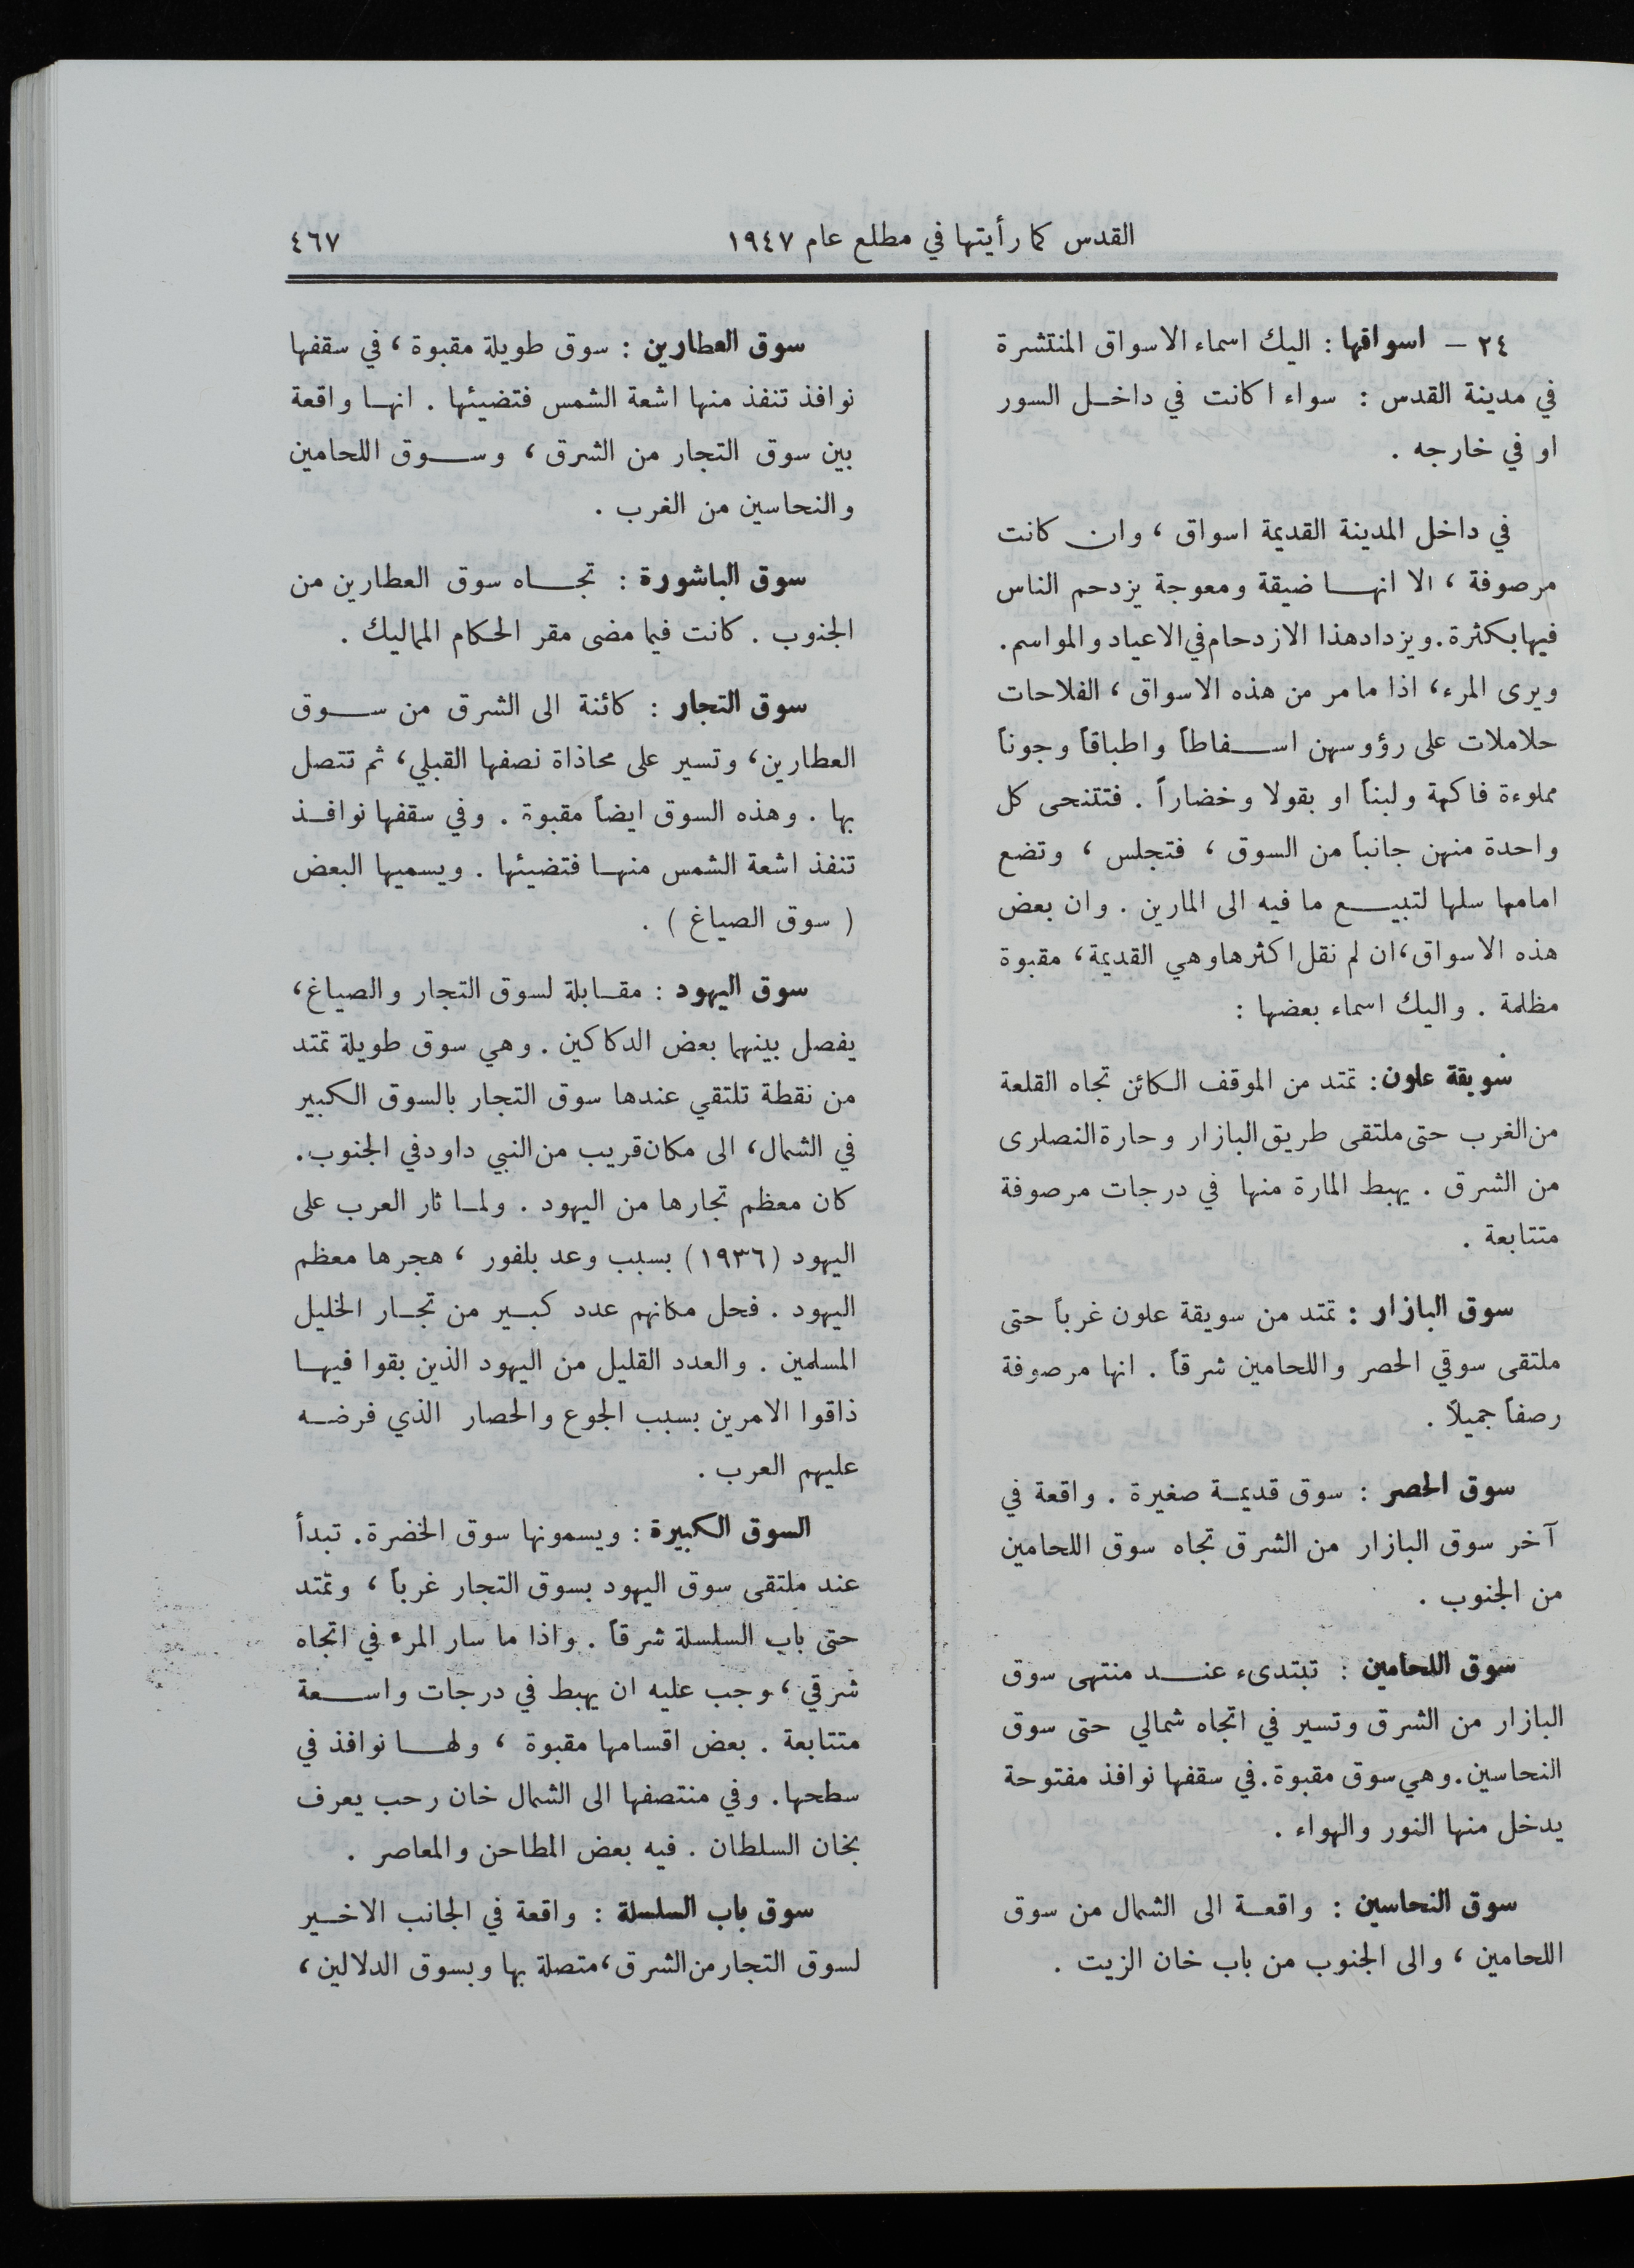 القدس كما رأيتها في مطلع عام ١٩٤٧
٤٦٧
٢٤ – اسواقها : اليك اسماء الاسواق المنتشرة
في مدينة القدس : سواء اكانت في داخل السور
او في خارجه .
في داخل المدينة القديمة اسواق ، وان كانت
مرصوفة ، الا انها ضيقة ومعوجة يزدحم الناس
فيها بكثرة . ويزداد هذا الازدحام في الاعياد والمواسم .
ويرى المرء ، اذا ما مر من هذه الاسواق ، الفلاحات
حلاملات على رؤوسهن اسفاطاً واطباقاً وجوناً
مملوءة فاكهة ولبناً او بقولا وخضاراً . فتتنحى كل
واحدة منهن جانباً من السوق ، فتجلس ، وتضع
امامها سلها لتبيع ما فيه الى المارين . وان بعض
هذه الاسواق ، ان لم نقل اكثرها وهي القديمة ، مقبوة
مظلمة . واليك اسماء بعضها :
سويقة علون : تمتد من الموقف الكائن تجاه القلعة
من الغرب حتى ملتقى طريق البازار وحارة النصلرى
من الشرق . يهبط المارة منها في درجات مرصوفة
متتابعة .
سوق البازار : تمتد من سويقة علون غرباً حتى
ملتقى سوقي الحصر واللحامين شرقاً . انها مرصوفة
رصفاً جميلاً .
سوق الحصر : سوق قديمة صغيرة . واقعة في
آخر سوق البازار من الشرق تجاه سوق اللحامين
من الجنوب .
سوق اللحامين : تبتدىء عند منتهى سوق
البازار من الشرق وتسير في اتجاه شمالي حتى سوق
النحاسين . وهي سوق مقبوة . في سقفها نوافذ مفتوحة
يدخل منها النور والهواء .
سوق النحاسين : واقعة الى الشمال من سوق
اللحامين ، والى الجنوب من باب خان الزيت .
سوق العطارين : سوق طويلة مقبوة ، في سقفها
نوافذ تنفذ منها اشعة الشمس فتضيئها . انها واقعة
بين سوق التجار من الشرق ، وسوق اللحامين
والنحاسين من الغرب .
سوق الباشورة : تجاه سوق العطارين من
الجنوب . كانت فيما مضى مقر الحكام المماليك .
سوق التجار : كائنة الى الشرق من سوق
العطارين ، وتسير على محاذاة نصفها القبلي ، ثم تتصل
بها . وهذه السوق ايضاً مقبوة . وفي سقفها نوافذ
تنفذ اشعة الشمس منها فتضيئها . ويسميها البعض
( سوق الصياغ ) .
سوق اليهود : مقابلة لسوق التجار والصياغ ،
يفصل بينهما بعض الدكاكين . وهي سوق طويلة تمتد
من نقطة تلتقي عندها سوق التجار بالسوق الكبير
في الشمال ، الى مكان قريب من النبي داود في الجنوب .
كان معظم تجارها من اليهود . ولما ثار العرب على
اليهود (١٩٣٦) بسبب وعد بلفور ، هجرها معظم
اليهود . فحل مكانهم عدد كبير من تجار الخليل
المسلمين . والعدد القليل من اليهود الذين بقوا فيها
ذاقوا الامرين بسبب الجوع والحصار الذي فرضه
عليهم العرب .
السوق الكبيرة : ويسمونها سوق الخضرة . تبدأ
عند ملتقى سوق اليهود بسوق التجار غرباً ، وتمتد
حتى باب السلسلة شرقاً . واذا ما سار المرء في اتجاه
شرقي ، وجب عليه ان يهبط في درجات واسعة
متتابعة . بعض اقسامها مقبوة ، ولها نوافذ في
سطحها . وفي منتصفها الى الشمال خان رحب يعرف
بخان السلطان . فيه بعض المطاحن والمعاصر .
سوق باب السلسلة : واقعة في الجانب الاخير
لسوق التجار من الشرق ، متصلة بها وبسوق الدلالين ،